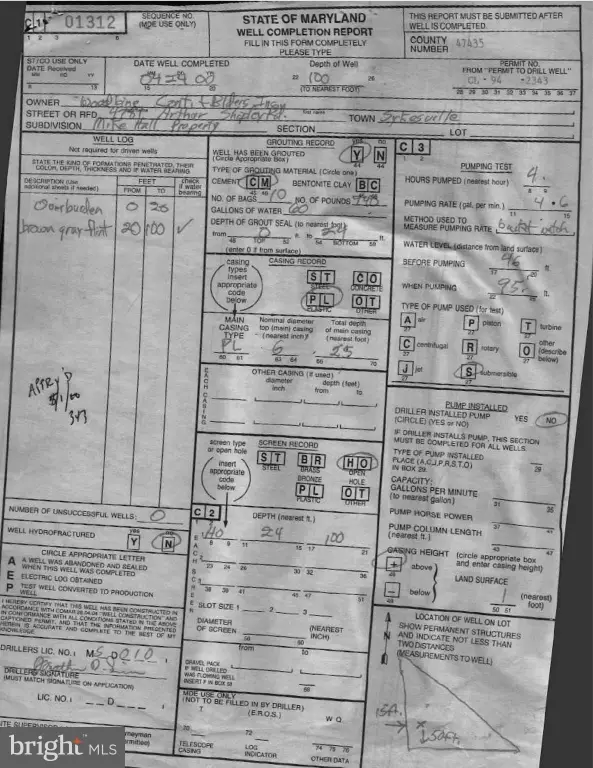 C 1 01312
1 2 3 6
SEQUENCE NO.
(MDE USE ONLY)
STATE OF MARYLAND
WELL COMPLETION REPORT
FILL IN THIS FORM COMPLETELY
PLEASE TYPE
THIS REPORT MUST BE SUBMITTED AFTER
WELL IS COMPLETED.
COUNTY
NUMBER 47435
ST/CO USE ONLY
DATE Received
DATE WELL COMPLETED
Depth of Well
22 100 26
(TO NEAREST FOOT)
PERMIT NO.
FROM "PERMIT TO DRILL WELL"
28 29 30 31 32 33 34 35 36 37
OWNER
STREET OR RFD
TOWN Sykesville
SUBDIVISION Mike Hall Property SECTION LOT
WELL LOG
Not required for driven wells
STATE THE KIND OF FORMATIONS PENETRATED, THEIR
COLOR, DEPTH, THICKNESS AND IF WATER BEARING
DESCRIPTION (Use
additional sheets if needed)
FEET
FROM TO
check
if water
bearing
Overburden 0 20
brown gray flint 20 100 ✓
NUMBER OF UNSUCCESSFUL WELLS: 0
WELL HYDROFRACTURED
yes no
Y N
CIRCLE APPROPRIATE LETTER
A A WELL WAS ABANDONED AND SEALED
WHEN THIS WELL WAS COMPLETED
E ELECTRIC LOG OBTAINED
P TEST WELL CONVERTED TO PRODUCTION
WELL
I HEREBY CERTIFY THAT THIS WELL HAS BEEN CONSTRUCTED IN
ACCORDANCE WITH COMAR 26.04.04 "WELL CONSTRUCTION" AND
IN CONFORMANCE WITH ALL CONDITIONS STATED IN THE ABOVE
CAPTIONED PERMIT, AND THAT THE INFORMATION PRESENTED
HEREIN IS ACCURATE AND COMPLETE TO THE BEST OF MY
KNOWLEDGE.
DRILLERS LIC. NO.
DRILLERS SIGNATURE
(MUST MATCH SIGNATURE ON APPLICATION)
LIC. NO. D
GROUTING RECORD
yes no
WELL HAS BEEN GROUTED
(Circle Appropriate Box)
Y N
44 44
TYPE OF GROUTING MATERIAL (Circle one)
CEMENT CM BENTONITE CLAY BC
NO. OF BAGS 10 NO. OF POUNDS
GALLONS OF WATER 60
DEPTH OF GROUT SEAL (to nearest foot)
from 0 ft. to 24 ft.
48 TOP 52 54 BOTTOM 58
(enter 0 if from surface)
CASING RECORD
casing
types
insert
appropriate
code
below
ST CO
STEEL CONCRETE
PL OT
PLASTIC OTHER
MAIN
CASING
TYPE
Nominal diameter
top (main) casing
(nearest inch)
Total depth
of main casing
(nearest foot)
PL 6 25
60 61 63 64 66 70
EACH CASING
OTHER CASING (if used)
diameter depth (feet)
inch from to
screen type
or open hole
SCREEN RECORD
insert
appropriate
code
below
ST BR HO
STEEL BRASS OPEN
BRONZE HOLE
PL OT
PLASTIC OTHER
C 2
DEPTH (nearest ft.)
EACH SCREEN
24 100
8 9 11 15 17 21
23 24 26 30 32 36
38 39 41 45 47 51
SLOT SIZE 1 2 3
DIAMETER
OF SCREEN (NEAREST
INCH)
from to
GRAVEL PACK
IF WELL DRILLED
WAS FLOWING WELL
INSERT F IN BOX 68
68
MDE USE ONLY
(NOT TO BE FILLED IN BY DRILLER)
T (E.R.O.S.) W Q
70 72 74 75 76
TELESCOPE
CASING
LOG
INDICATOR
OTHER DATA
C 3
PUMPING TEST
HOURS PUMPED (nearest hour) 4
PUMPING RATE (gal. per min.)
METHOD USED TO
MEASURE PUMPING RATE
WATER LEVEL (distance from land surface)
BEFORE PUMPING ft.
WHEN PUMPING 95 ft.
TYPE OF PUMP USED (for test)
A air P piston T turbine
C centrifugal R rotary O other
(describe
below)
J jet S submersible
PUMP INSTALLED
DRILLER INSTALLED PUMP YES NO
(CIRCLE) (YES or NO)
IF DRILLER INSTALLS PUMP, THIS SECTION
MUST BE COMPLETED FOR ALL WELLS.
TYPE OF PUMP INSTALLED
PLACE (A,C,J,P,R,S,T,O)
IN BOX 29.
29
CAPACITY:
GALLONS PER MINUTE
(to nearest gallon)
31 35
PUMP HORSE POWER
37 41
PUMP COLUMN LENGTH
(nearest ft.)
43 47
CASING HEIGHT (circle appropriate box
and enter casing height)
+ above
LAND SURFACE
- below 1 (nearest)
foot)
50 51
LOCATION OF WELL ON LOT
SHOW PERMANENT STRUCTURES
AND INDICATE NOT LESS THAN
TWO DISTANCES
(MEASUREMENTS TO WELL)
15ft.
bright MLS